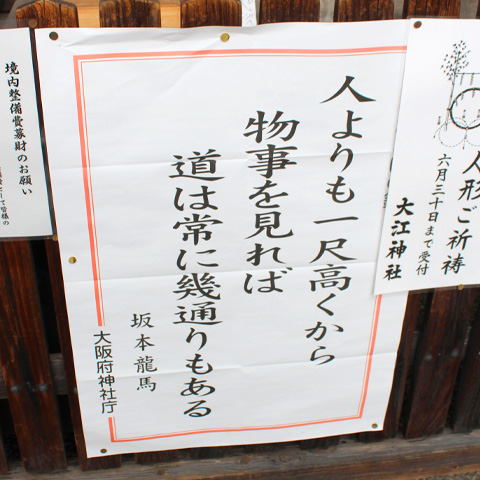 人形ご祈祷
六月三十日まで受付
大江神社
人よりも一尺高くから
物事を見れば
道は常に幾通りもある
坂本龍馬
大阪府神社庁
境内整備費募財のお願い